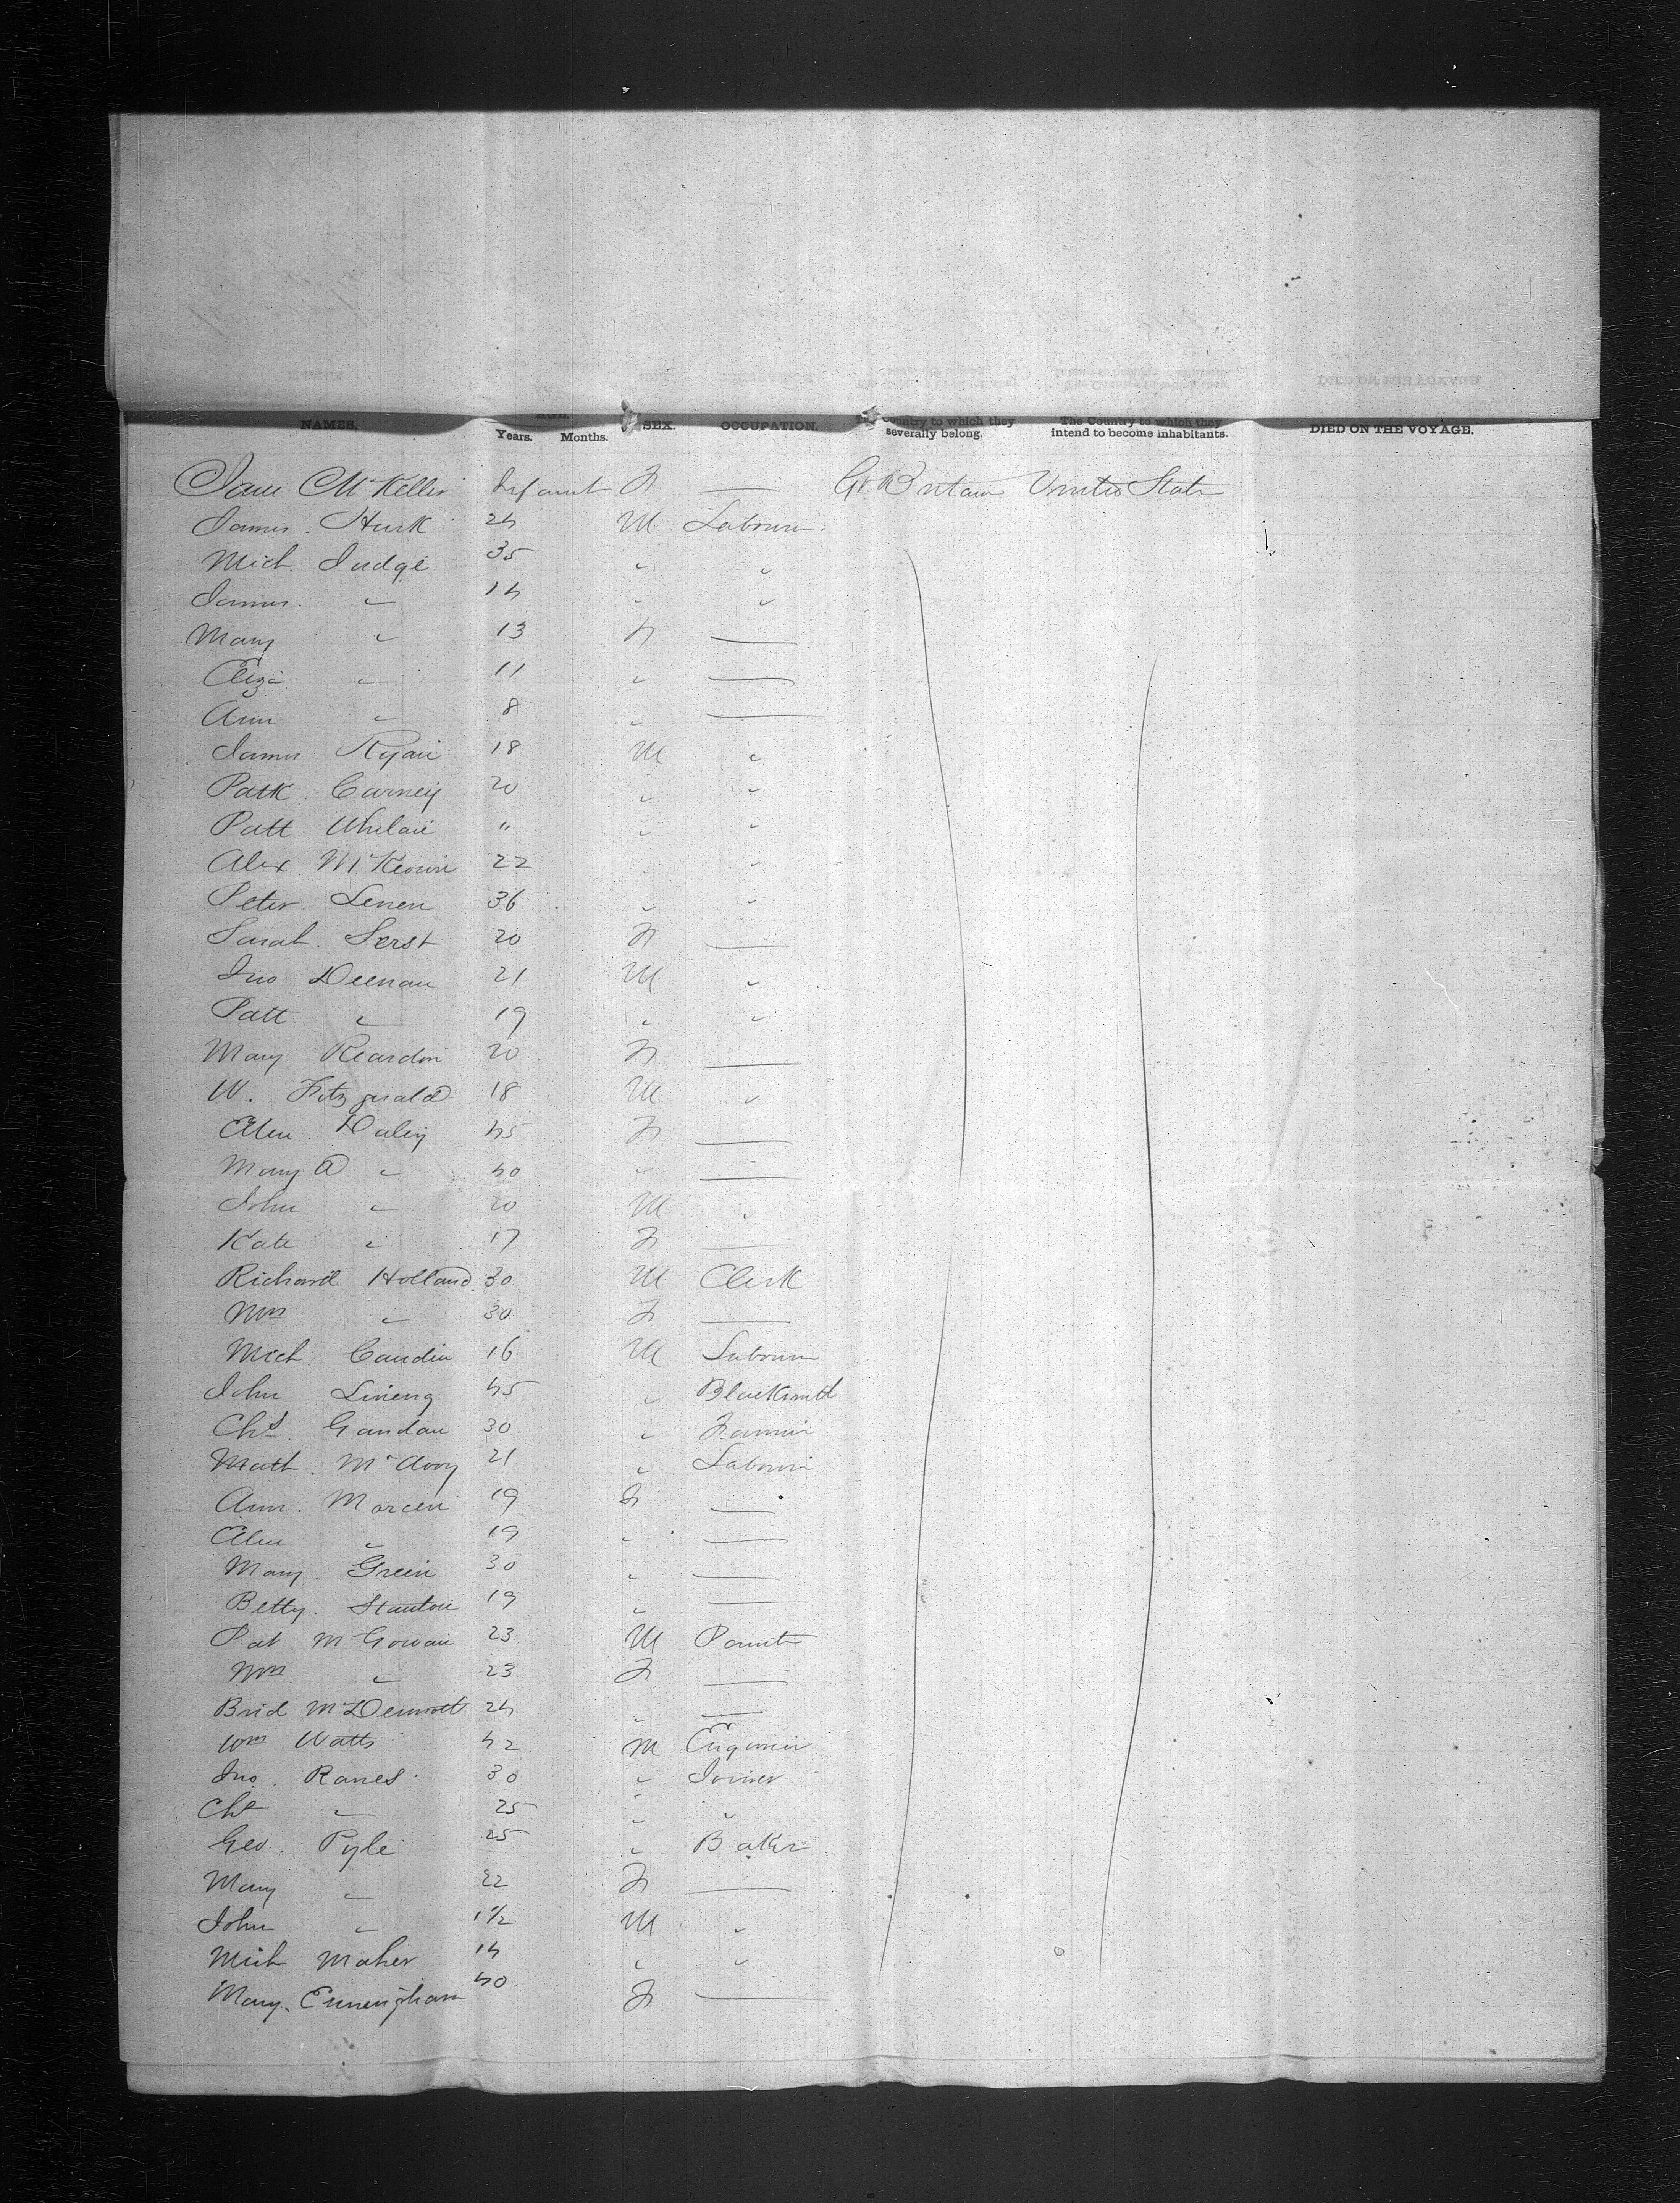 NAMES. AGE. Years. Months. SEX. OCCUPATION. The Country to which they severally belong. The Country to which they intend to become inhabitants. DIED ON THE VOYAGE.
Jane McKeller Infant F — Gt Britain United State
James Hurk 24 M Labourer
Mich. Judge 35 " "
James " 14 " "
Mary " 13 F —
Eliza " 11 " —
Ann " 8 " —
James Ryan 18 M "
Patk. Carney 20 " "
Patt Whelan " " "
Alex McKeown 22 " "
Peter Lenen 36 " "
Sarah 20 F —
Jno Deenan 21 M "
Patt " 19 " "
Mary Reardon 20 F —
W. Fitzgerald 18 M "
Ellen Daley 45 F —
Mary A " 40 " —
John " 20 M "
Kate " 17 F —
Richard Holland 30 M Clerk
Mrs " 30 F —
Mich Caudin 16 M Labourer
John Lineng 45 " Blacksmith
Chs Gandau 30 " Farmer
Math. McAvoy 21 " Labourer
Ann. 19 F —
Ellen " 19 " —
Mary Green 30 " —
Betty Stanton 19 " —
Pat McGowan 23 M Painter
Mrs " 23 F —
Brid McDermott 24 " —
Wm Watts 42 M Engineer
Jno. Ranes 30 " Joiner
Chs " 25 " "
Geo. Pyle 25 " Baker
Mary " 22 F —
John " 1½ M "
Mich Maher 14 " "
Mary Cunningham 40 F —